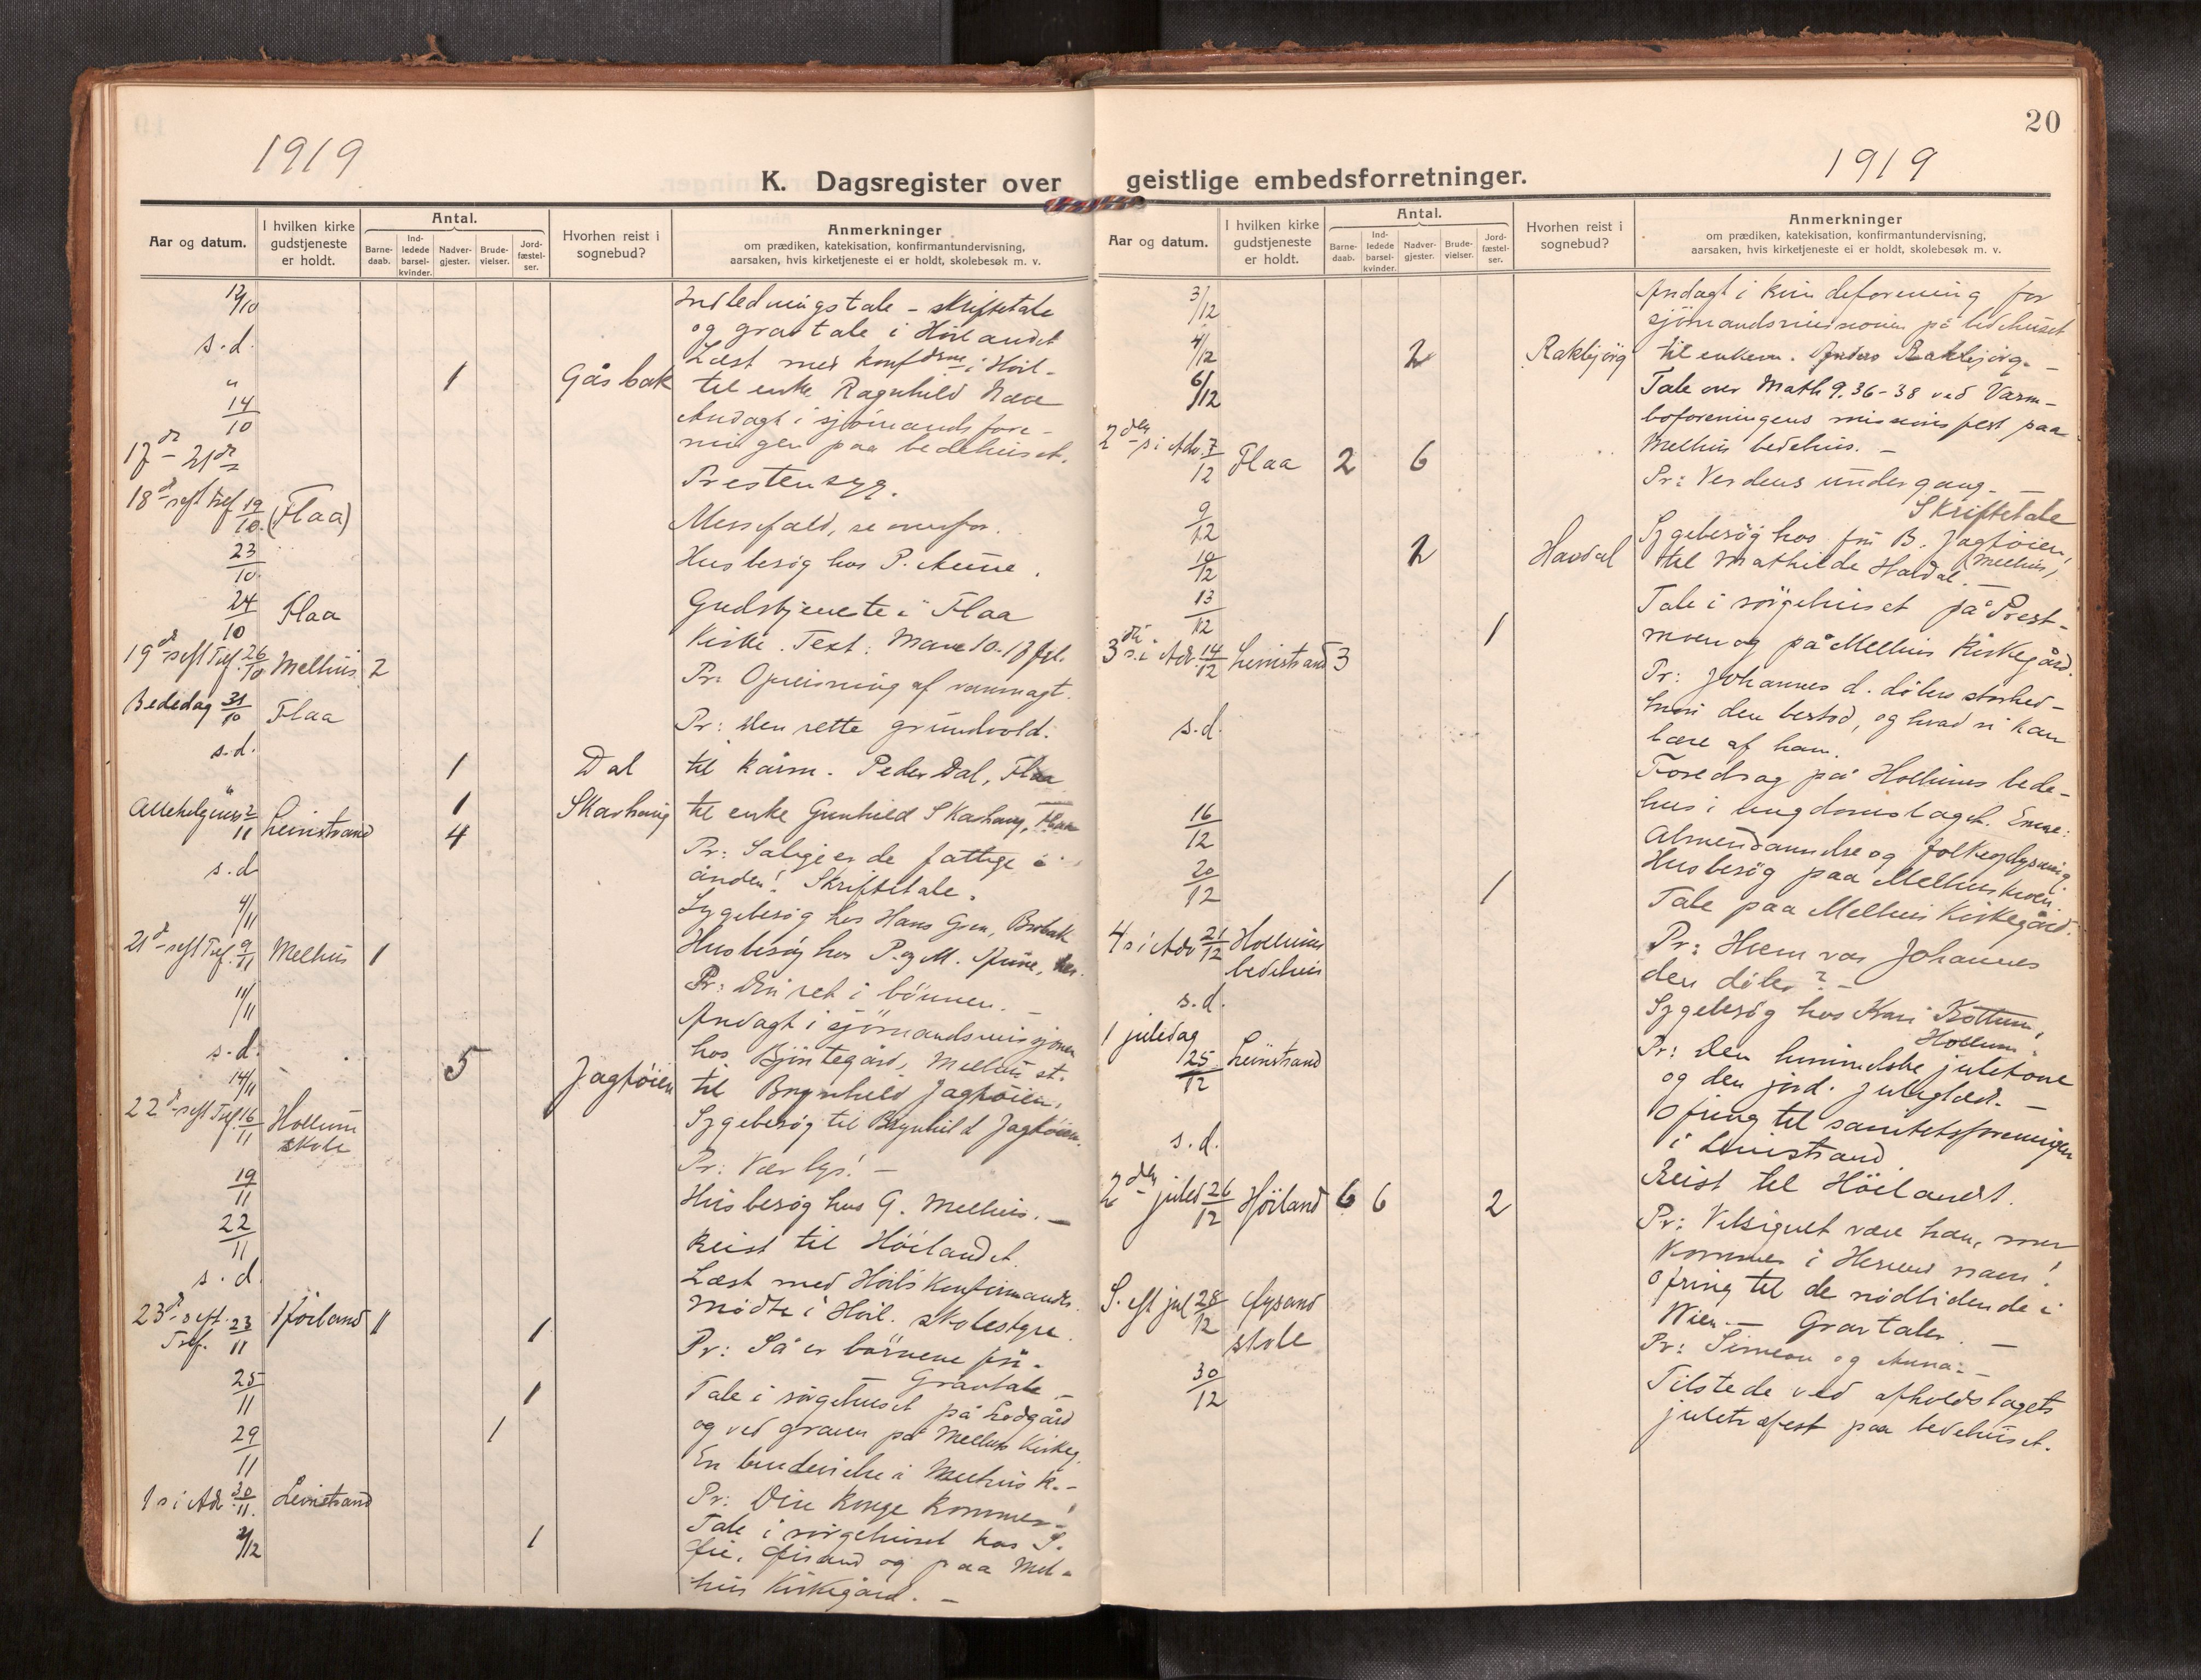 1919
K. Dagsregister over
Aar og datum.
I hvilken kirke gudstjeneste er holdt.
Antal.
Barne-daab.
Ind-ledede barsel-kvinder.
Nadver-gjester.
Brude-vielser.
Jord-fæstel-ser.
Hvorhen reist i sognebud?
Anmerkninger
om prædiken, katekisation, konfirmantundervisning,
aarsaken, hvis kirketjeneste ei er holdt, skolebesøk m. v.
12/10 Indledningstale - skriftetale
og gravtale i Höilandet
s.d. Læst med konf. i Höil-
" 1 Gåsbak til enke Ragnhild
14/10 Andagt i sjömandsfore-
ningen paa bedehuset.
17de - 21de Prestensyg.
18de s eft Tref. 19/10 (Flaa) Messefald, se ovenfor.
23/10 Husbesög hos P. Aune.
24/10 Flaa Gudstjeneste i Flaa
Kirke. Text: Marc 10. 17 fgl.
19de s eft Tref. 26/10 Melhus 2 Pr: Opreisning af vanmagt.
Bededag 31/10 Flaa Pr: Den rette grundvold.
s.d. 1 Dal til kårm. Peder Dal, Flaa
" 1 Skarhaug til enke Gunhild Skarhaug, Flaa
Allehelgens 2/11 Leinstrand 4 Pr: Salige er de fattige i
ånden! Skriftetale.
s.d. Sygebesög hos Hans Gren, Brobak
4/11 Husbesög hos P. og M.
21de s eft Tref. 9/11 Melhus 1 Pr: Din ret i bönnen. -
11/11 Andagt i sjömandsmisjonen
hos Bjöntegård, Melhus st.
s.d. 5 Jagtöien til Brynhild Jagtöien.
14/11 Sygebesög til Brynhild Jagtöien.
22de s eft Tref 16/11 Hollum
skole Pr: Vær lys! -
19/11 Husbesög hos G. Melhus. -
22/11 Reist til Höilandet.
s.d. Læst med Höil's Konfirmander.
Mödte i Höil. skolestyre.
23de s eft. Tref. 23/11 Höiland 11 1 Pr: Så er børnene fri.
Gravtale -
25/11 1 Tale i sörgehuset på Lodgård
og ved graven på Melhus Kirkeg.
29/11 1 En brudevielse i Melhus K.-
1 s i Adv 30/11. Leinstrand Pr: Din Konge kommer!
2/12 1 Tale i sörgehuset hos
og paa Mel-
hus Kirkegård. -
20
1919
geistlige embedsforretninger.
Aar og datum.
I hvilken kirke gudstjeneste er holdt.
Antal.
Barne-daab.
Ind-ledede barsel-kvinder.
Nadver-gjester.
Brude-vielser.
Jord-fæstel-ser.
Hvorhen reist i sognebud?
Anmerkninger
om prædiken, katekisation, konfirmantundervisning,
aarsaken, hvis kirketjeneste ei er holdt, skolebesøk m. v.
3/12 Andagt i kvindeforening for
sjömandsmissionen på bedehuset
4/12 2 Rakbjörg til enkem. Anders Rakbjörg. -
6/12 Tale over Math 9. 36-38 ved Varm-
boforeningens missionsfest paa
Melhus bedehus. -
2den s i Adv. 7/12 Flaa 2 6 Pr: Verdens undergang. -
Skriftetale
9/12 Sygebesög hos fru B. Jagtöien,
Melhus,
10/12 2 Havdal til Mathilde Havdal. -
13/12 1 Tale i sörgehuset på Prest-
moen og på Melhus Kirkegård.
3die s. i Adv. 14/12 Leinstrand 3 Pr: Johannes d. døbers storhed -
hvori den bestod, og hvad vi kan
lære af ham.
s.d. Foredrag på Hollums bede-
hus i ungdomslaget. Emne:
Almendannelse og folkeoplysning
16/12 Husbesög paa Melhusmoen.
20/12 1 Tale paa Melhus Kirkegård.
4 s i Adv 21/12 Hollums
bedehus Pr: Hvem var Johannes
den døber? -
s.d. Sygebesög hos Kari Kottum,
Hollum.
1 juledag
25/12 Leinstrand Pr: Den himmelske juletone
og den jord. juleglæde. -
Ofring til sanitetsforeningen
i Leinstrand
s.d. Reist til Höilandet.
2den juled 26/12 Höiland 6 6 2 Pr: Velsignet være han, som
kommer i Herrens navn!
Ofring til de nödlidende i
Wien. - Gravtaler.
S. eft jul 28/12 Øysand
skole Pr: Simeon og Anna. -
30/12 Tilstede ved afholdslagets
juletræfest paa bedehuset.